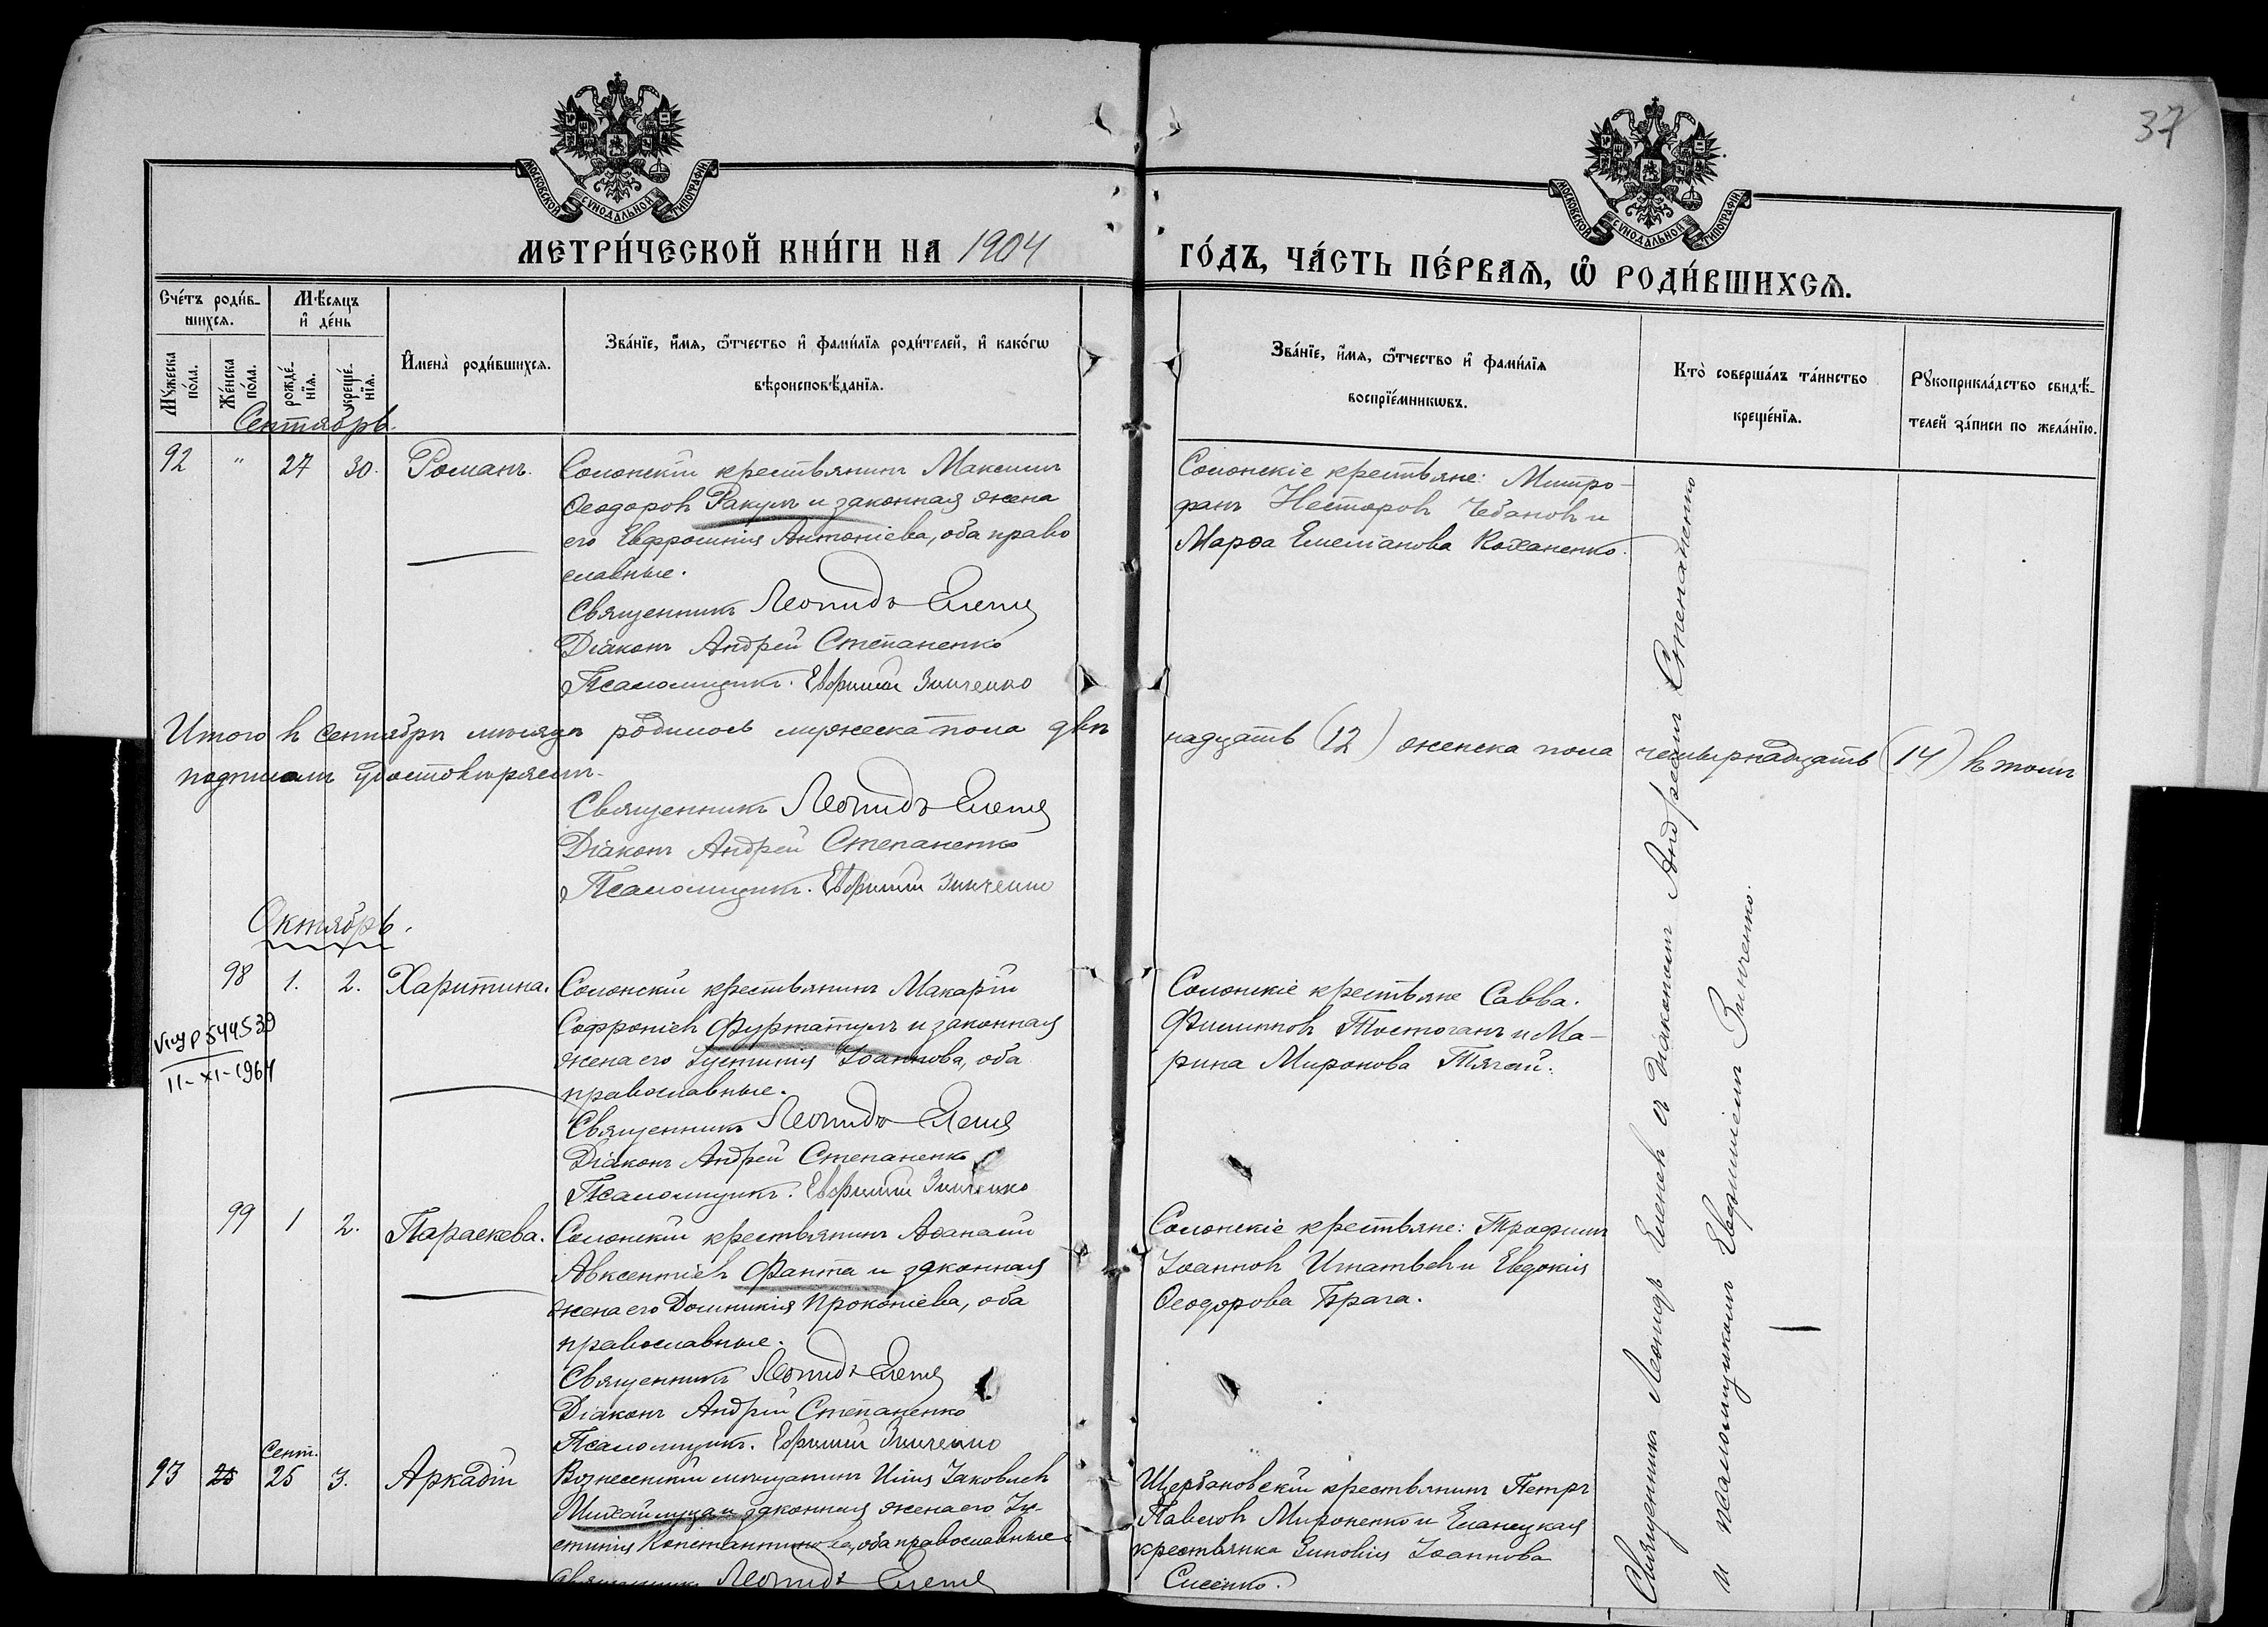 37
МОСКОВСКОЙ СѴНОДАЛЬНОЙ ТИПОГРАФІИ
МОСКОВСКОЙ СѴНОДАЛЬНОЙ ТИПОГРАФІИ
МЕТРИ́ЧЕСКОЙ КНИ́ГИ НА 1904
ГО́ДЪ, ЧА́СТЬ ПЕ́РВАѦ, Ѡ҆ РОДИ́ВШИХСѦ.
Сче́тъ роди́в-
шихся.
Мѣ́сяцъ
и҆ де́нь
Мꙋ́жеска
по́ла.
Же́нска
по́ла.
рожде́-
нїя.
креще́-
нїя.
И҆мена̀ роди́вшихся.
Зва́нїе, и҆́мя, ѻ҆́тчество и҆ фами́лїя роди́телей, и҆ како́гѡ
вѣроисповѣ́данїя.
Зва́нїе, и҆́мя, ѻ҆́тчество и҆ фами́лїя
воспрїе́мникѡвъ.
Кто̀ соверша́лъ та́инство
креще́нїя.
Рꙋкоприкла́дство свидѣ́-
телей за́писи по жела́нїю.
Сентябрь.
92 " 27 30. Романъ.
Солонскій крестьянинъ Максимъ
Ѳеодоровъ Ракулъ и законная жена
его Евфросинія Антоніева, оба право
славные.
Священникъ Леонидъ Еленев
Діаконъ Андрей Степаненко
Псаломщикъ. Евфимій Зинченко
Солонскіе крестьяне: Митро-
фанъ Несторовъ Чебановъ и
Марѳа Емеліанова Коханенко.
Итого въ Сентябрѣ мѣсяцѣ родилось мужеска пола двѣ
надцать (12) женска пола четырнадцать (14) въ томъ
подписомъ удостовѣряемъ.
Священникъ Леонидъ Еленев
Діаконъ Андрей Степаненко
Псаломщикъ. Евфимій Зинченко
Октябрь.
98 1. 2. Харитина.
Солонскій крестьянинъ Макарій
Софроніевъ Фуртатулъ и законная
жена его Іустинія Іоаннова, оба
православные.
Священникъ Леонидъ Еленев
Діаконъ Андрей Степаненко
Псаломщикъ. Евфимій Зинченко
Солонскіе крестьяне Савва
Филипповъ Тостоганъ и Ма-
рина Миронова Тягай.
544539
11-XI-1964
99 1 2. Параскева.
Солонскій крестьянинъ Аѳанасій
Авксентіевъ Фанта и законная
жена его Домникія Прокопіева, оба
православные.
Священникъ Леонидъ Еленев
Діаконъ Андрей Степаненко
Псаломщикъ. Евфимій Зинченко
Солонскіе крестьяне: Трофимъ
Іоанновъ Игнатьевъ и Евдокія
Ѳеодорова Брага.
Сент.
93 25 25 3. Аркадій
Вознесенскій мѣщанинъ Илія Іаковлевъ
Михайлуца и законная жена его Іу-
стинія Константинова, оба православные
Священникъ Леонидъ Еленев
Щербановскій крестьянинъ Петръ
Павловъ Мироненко и Еланецкая
крестьянка Зиновія Іоаннова
Сисенко.
Священникъ Леонидъ Еленевъ съ діакономъ Андреемъ Степаненко
и псаломщикомъ Евфиміемъ Зинченко.